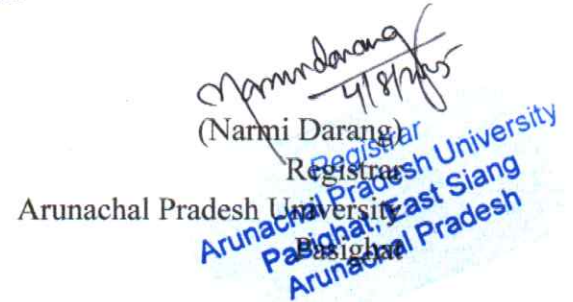 Narmi Darang
4/8/2025
(Narmi Darang)
Registrar
Arunachal Pradesh University
Pasighat
Registrar
Arunachal Pradesh University
Pasighat, East Siang
Arunachal Pradesh